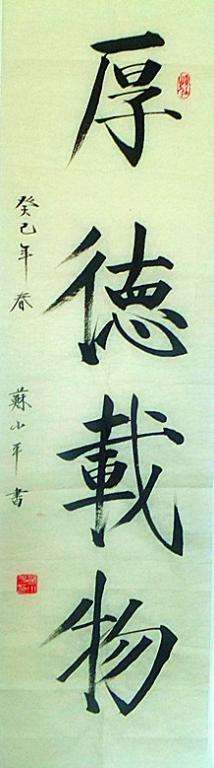 厚德載物
癸巳年春 蘇小平書